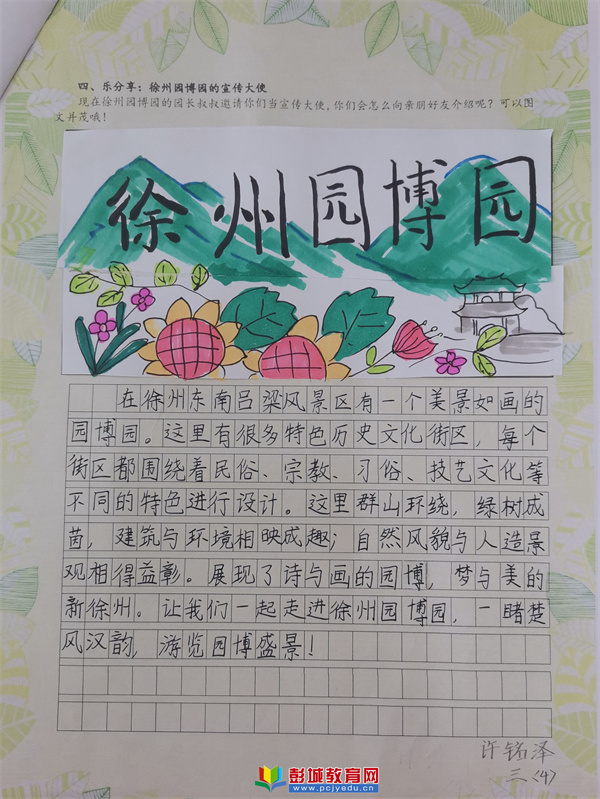 四、乐分享：徐州园博园的宣传大使
现在徐州园博园的园长叔叔邀请你们当宣传大使，你们会怎么向亲朋好友介绍呢？可以图
文并茂哦！
徐州园博园
在徐州东南吕梁风景区有一个美景如画的
园博园。这里有很多特色历史文化街区，每个
街区都围绕着民俗、宗教、习俗、技艺文化等
不同的特色进行设计。这里群山环绕，绿树成
茵，建筑与环境相映成趣；自然风貌与人造景
观相得益彰。展现了诗与画的园博，梦与美的
新徐州。让我们一起走进徐州园博园，一睹楚
风汉韵，游览园博盛景！
许铭泽
三（4）
彭城教育网
www.pcjyedu.cn